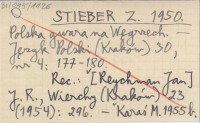 STIEBER Z. 1950.
Polska gwara na Węgrzech. —
Język Polski (Kraków) 30,
nr 4: 177-180.
Rec.: [Reychman Jan]
J. R., Wierchy (Kraków) 23
(1954): 296. — Karaś M. 1955 b.